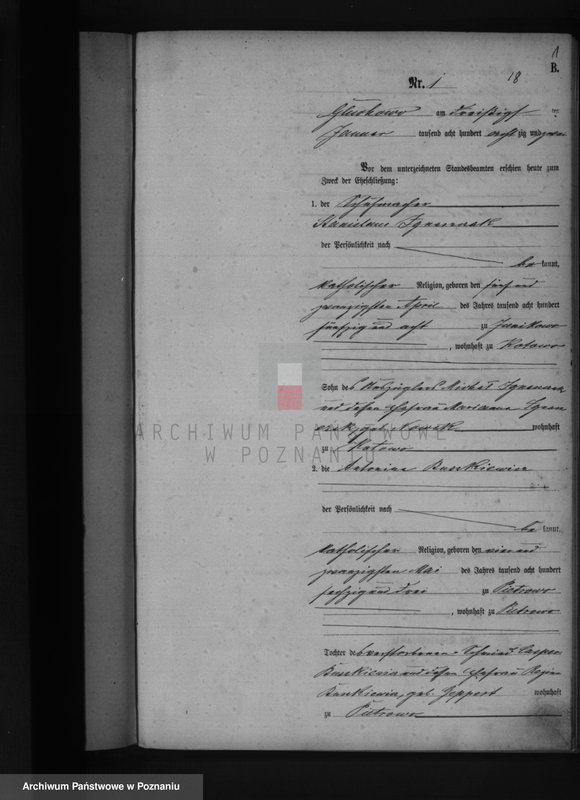 1
B.
Nr. 1
18
Gluchowo am dreißigsten
Januar tausend acht hundert achtzig und
Vor dem unterzeichneten Standesbeamten erschien heute zum
Zweck der Eheschließung:
1. der Schuhmacher
Stanislaus
der Persönlichkeit nach
be kannt,
katholischer Religion, geboren den fünf und
zwanzigsten April des Jahres tausend acht hundert
fünfzig und acht zu Janikowo
, wohnhaft zu Kotowo
Sohn des Auszüglers Michael
und dessen Ehefrau Marianna
geb. Nowak wohnhaft
zu Kotowo
2. die Antonina Baszkiewicz
der Persönlichkeit nach
be kannt,
katholischer Religion, geboren den vier und
zwanzigsten Mai des Jahres tausend acht hundert
sechzig und drei zu Pietrowo
, wohnhaft zu Pietrowo
Tochter des verstorbenen Schmied Casper
und dessen Ehefrau
geb. Geppert wohnhaft
zu Pietrowo
ARCHIWUM PAŃSTWOWE
W POZNANIU
Archiwum Państwowe w Poznaniu